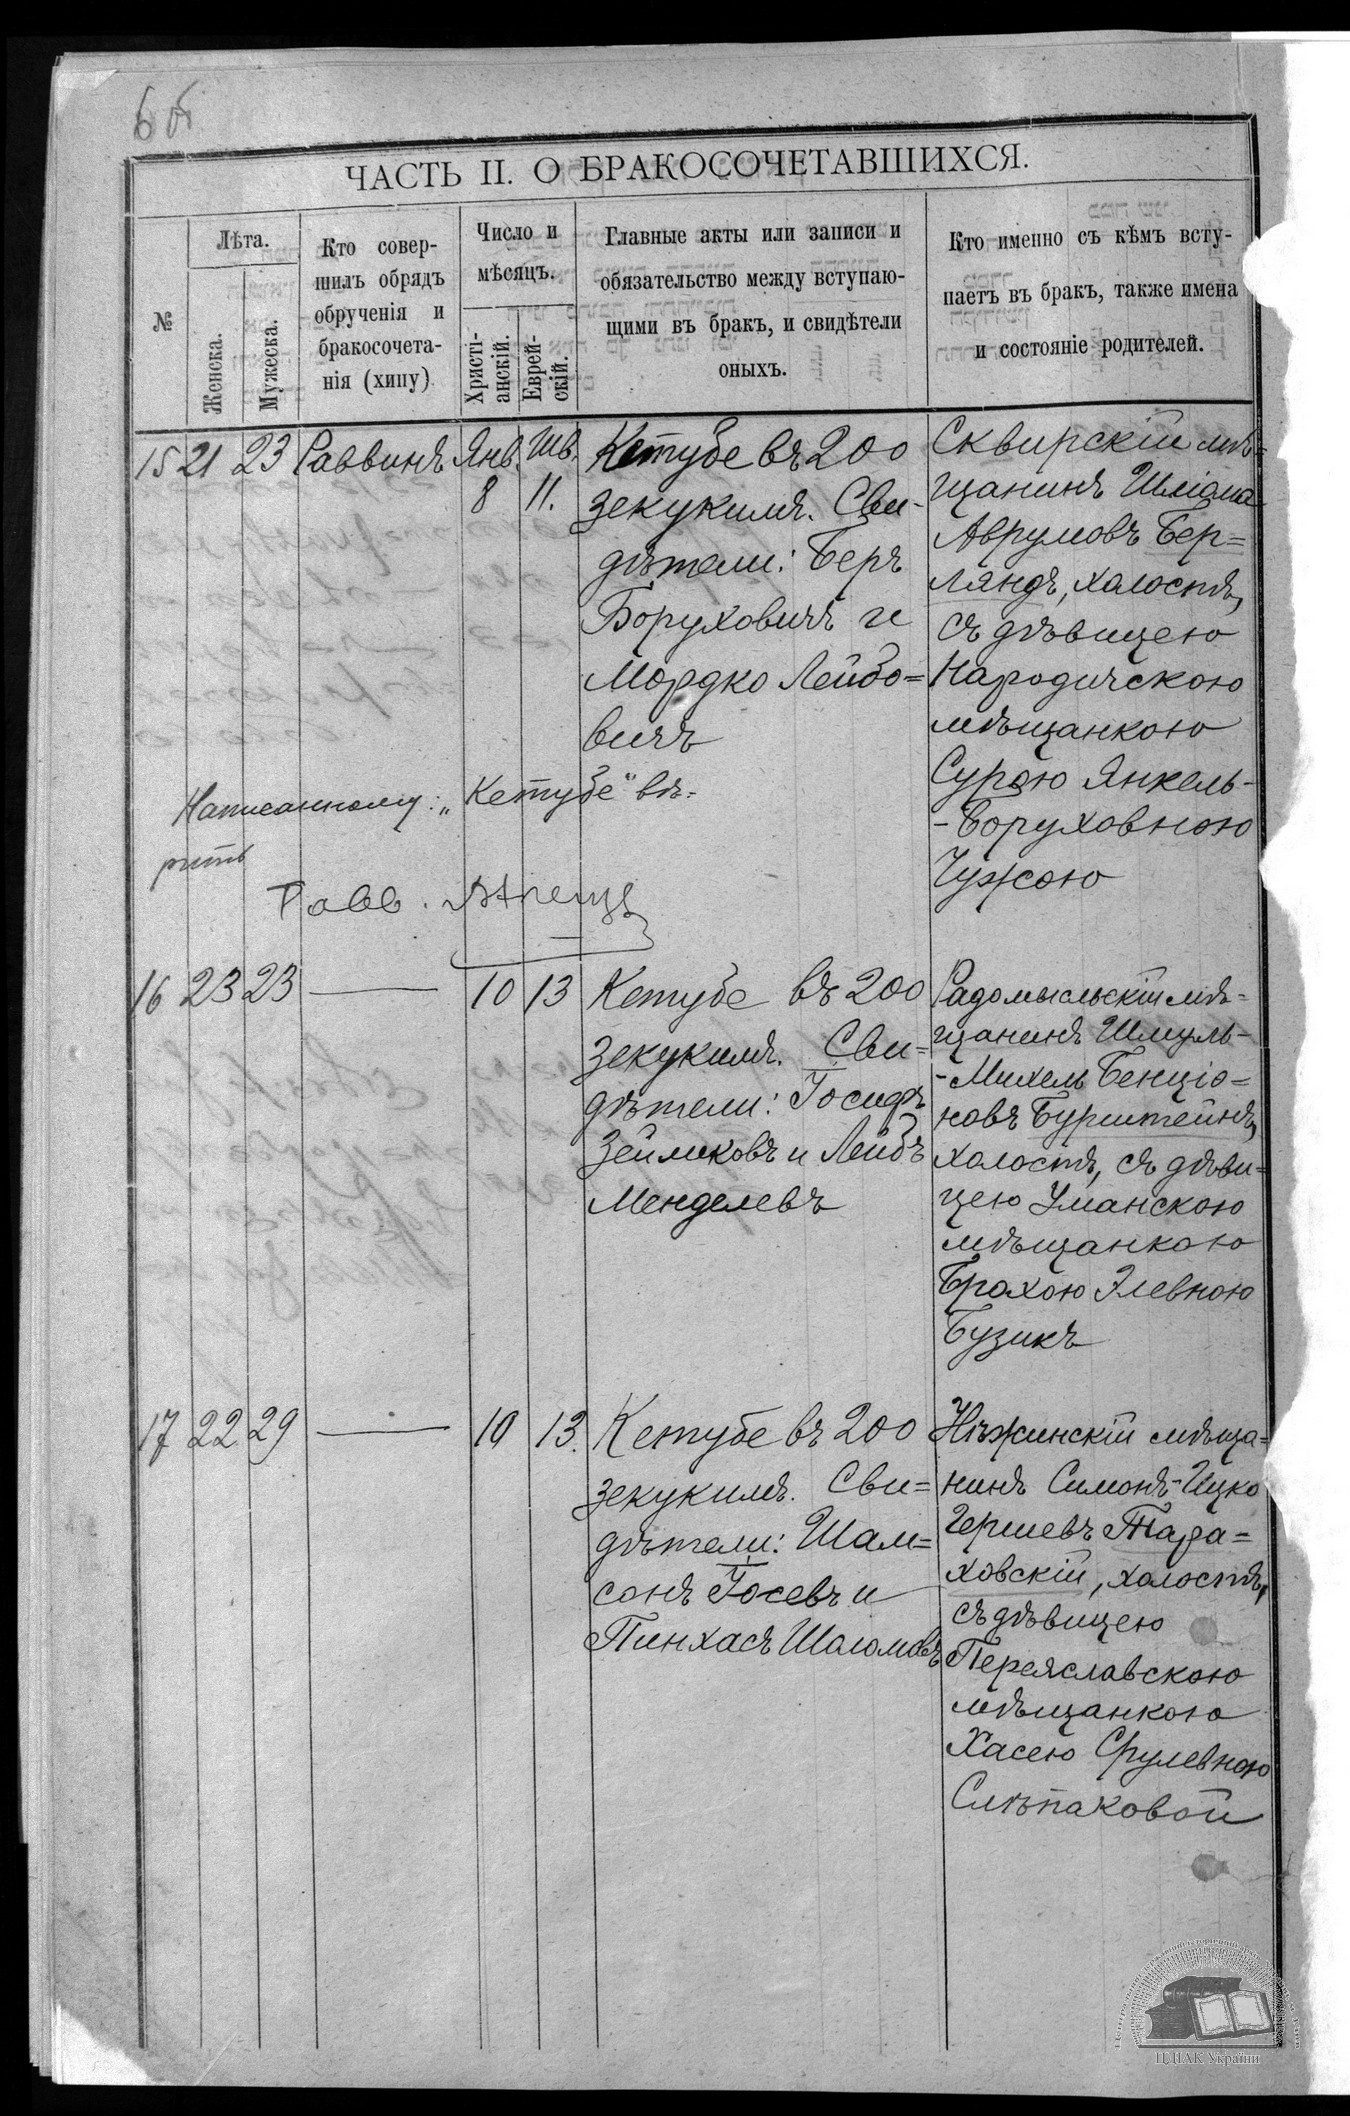 6 об
ЧАСТЬ II. О БРАКОСОЧЕТАВШИХСЯ.
№
Лѣта.
Женска.
Мужеска.
Кто совер-
шилъ обрядъ
обрученія и
бракосочета-
нія (хипу)
Число и
мѣсяцъ.
Христі-
анскій.
Еврей-
скій.
Главные акты или записи и
обязательство между вступаю-
щими въ бракъ, и свидѣтели
оныхъ.
Кто именно съ кѣмъ всту-
паетъ въ бракъ, также имена
и состояніе родителей.
15 21 23 Раввинъ Янв. 8 Шв. 11.
Кетубе въ 200
зекукимъ. Сви-
дѣтели: Беръ
Боруховичъ и
Мордко Лейбо=
вичъ
Сквирскій мѣ=
щанинъ Шліома
Аврумовъ Бер=
ляндъ, холостъ,
съ дѣвицею
Народичскою
мѣщанкою
Сурою Янкель-
-Боруховною
Чужою
Написанному: „Кетубе" вѣ-
рить
Равв.
16 23 23 — 10 13
Кетубе въ 200
зекукимъ. Сви=
дѣтели: Іосифъ
Зейликовъ и Лейбъ
Менделевъ
Радомысльскій мѣ-
щанинъ Шмуль-
-Михель Бенціо=
новъ Бурштейнъ,
холостъ, съ дѣви=
цею Уманскою
мѣщанкою
Брохою Элевною
Бузикъ
17 22 29 — 10 13.
Кетубе въ 200
зекукимъ. Сви=
дѣтели: Шам=
сонъ Іосевъ и
Пинхасъ Шоломовъ
Нѣжинскій мѣща=
нинъ Симонъ-Ицко
Гершевъ Тара=
ховскій, холостъ,
съ дѣвицею
Переяславскою
мѣщанкою
Хасею Срулевною
Слѣпаковой
ЦДІАК України